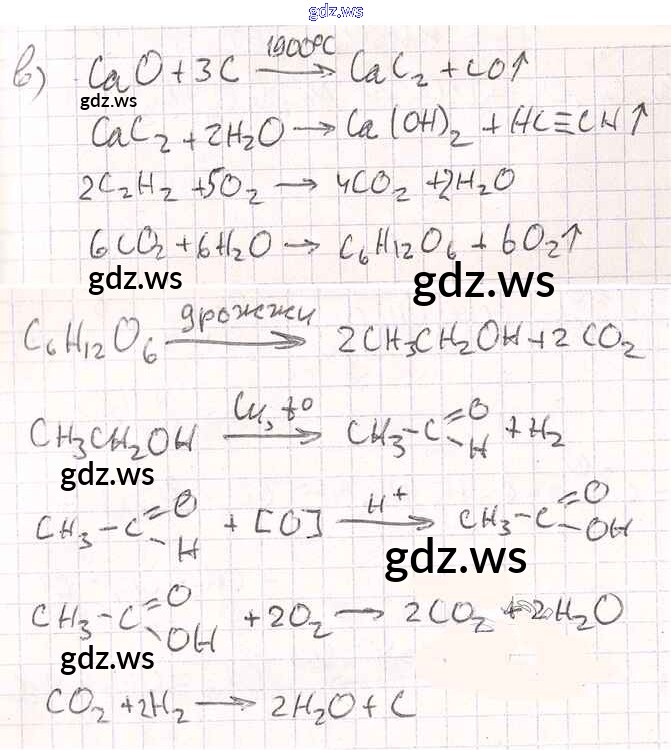 gdz.ws
в) CaO + 3C 1900°C → CaC₂ + CO↑
gdz.ws
CaC₂ + 2H₂O → Ca(OH)₂ + HC≡CH↑
2C₂H₂ + 5O₂ → 4CO₂ + 2H₂O
6CO₂ + 6H₂O → C₆H₁₂O₆ + 6O₂↑
gdz.ws gdz.ws
C₆H₁₂O₆ дрожжи → 2CH₃CH₂OH + 2CO₂
CH₃CH₂OH Cu, t° → CH₃-C=O-H + H₂
gdz.ws
CH₃-C=O-H + [O] H⁺ → CH₃-C=O-OH
gdz.ws
CH₃-C=O-OH + 2O₂ → 2CO₂ + 2H₂O
gdz.ws
CO₂ + 2H₂ → 2H₂O + C